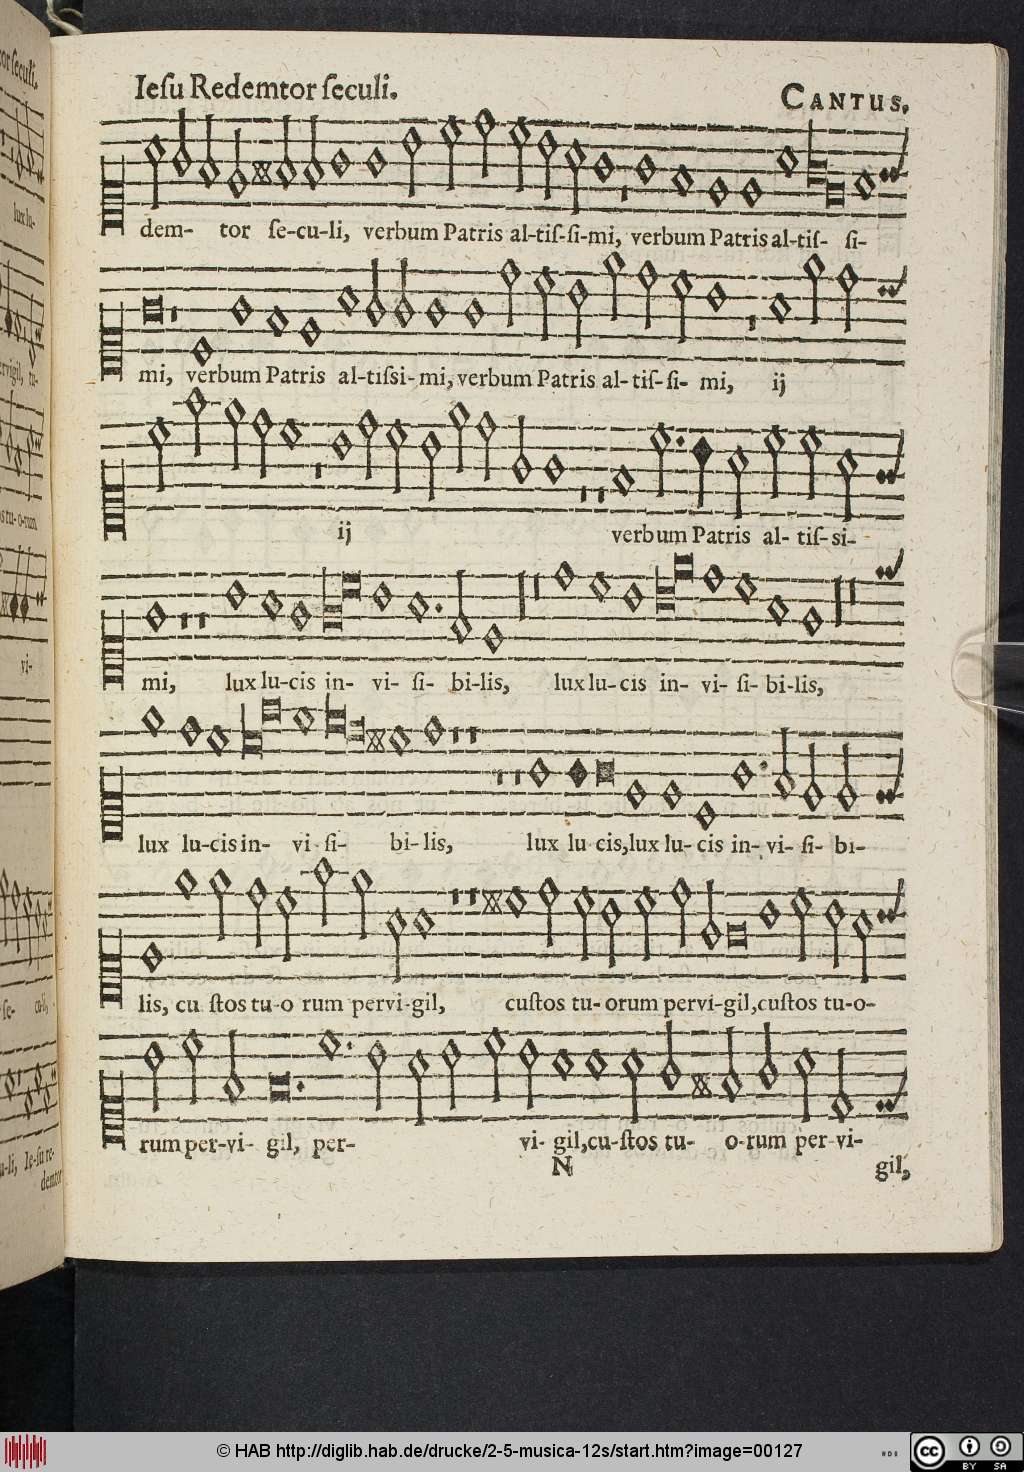 Ieſu Redemtor ſeculi.
CANTUS.
dem- tor ſe-cu-li, verbum Patris al-tiſ-ſi-mi, verbum Patris al-tiſ- ſi-
mi, verbum Patris al-tiſsi-mi, verbum Patris al-tiſ-ſi- mi, ij
ij verbum Patris al- tiſ-si-
mi, lux lu-cis in- vi- ſi- bi-lis, lux lu-cis in- vi- ſi- bi-lis,
lux lu-cis in- vi- ſi- bi-lis, lux lu cis, lux lu- cis in- vi- ſi- bi-
lis, cu ſtos tu-o rum pervi-gil, cuſtos tu- orum pervi-gil, cuſtos tu-o-
rum per-vi- gil, per- vi- gil, cu-ſtos tu- o-rum per-vi-
N gil,
© HAB http://diglib.hab.de/drucke/2-5-musica-12s/start.htm?image=00127
cc BY SA